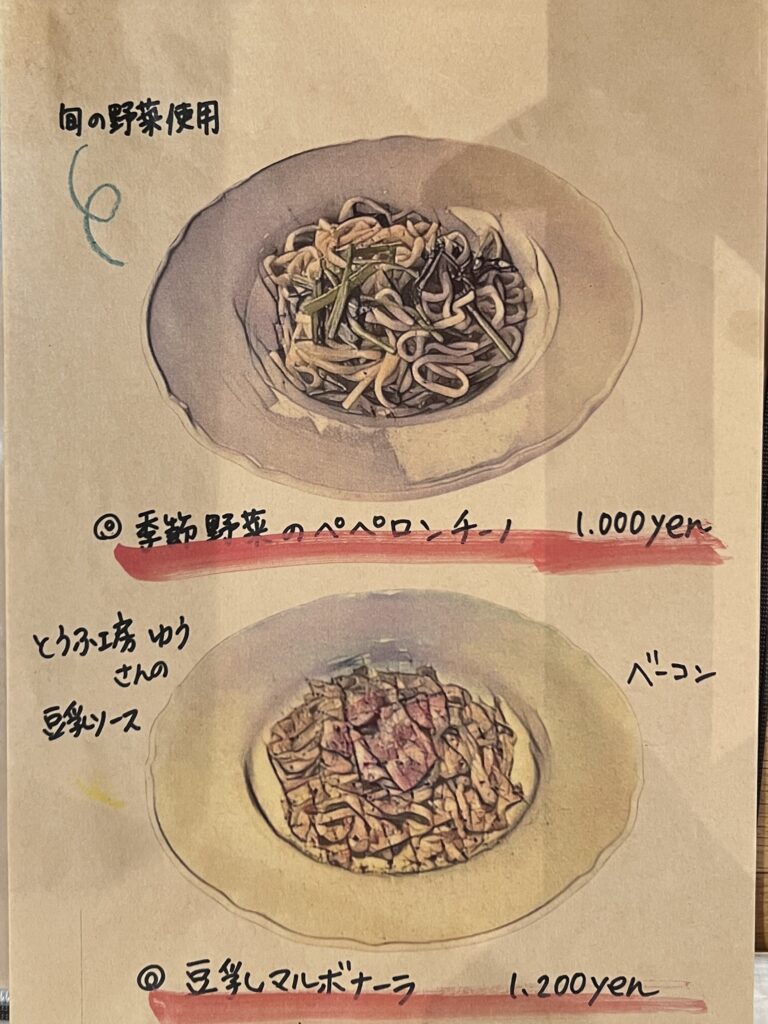 旬の野菜使用
◎ 季節野菜のペペロンチーノ 1.000yen
とうふ工房 ゆう
さんの
豆乳ソース
ベーコン
◎ 豆乳マルボナーラ 1.200yen